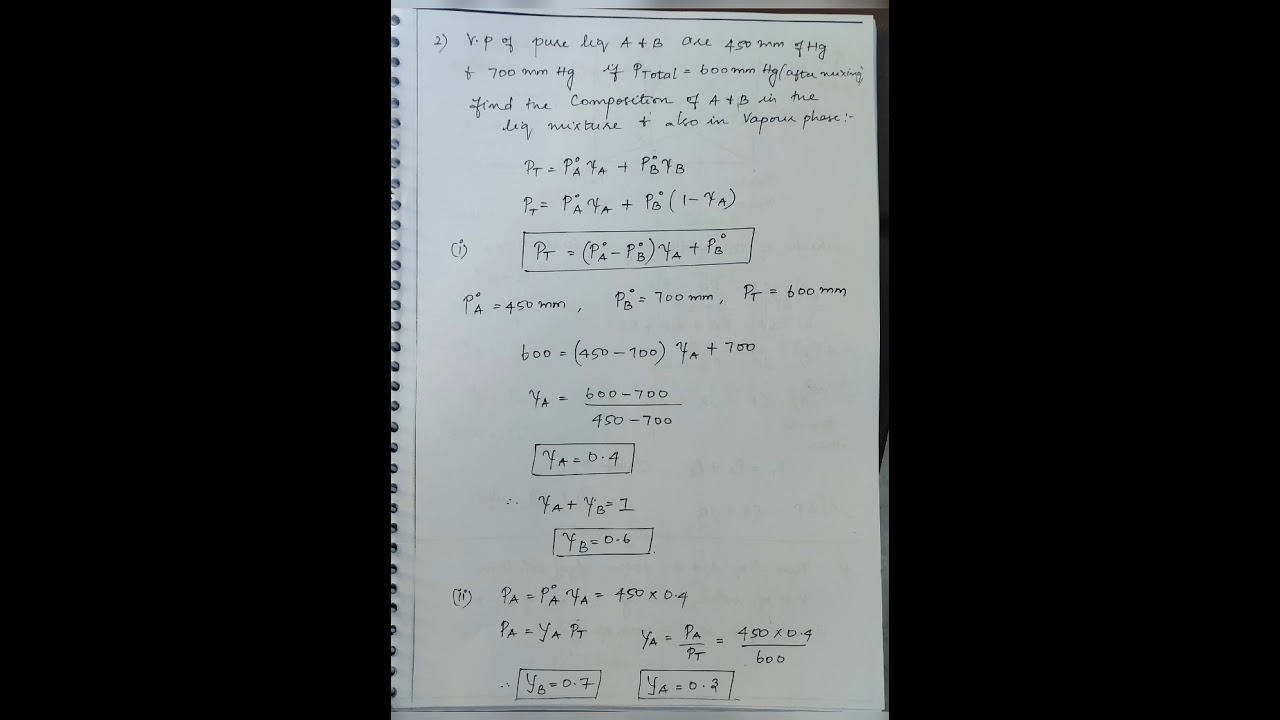 2) V.P of pure liq A & B are 450 mm of Hg
& 700 mm Hg if P_Total = 600 mm Hg (after mixing)
find the Composition of A & B in the
liq mixture & also in Vapour phase:-
P_T = P°_A χ_A + P°_B χ_B
P_T = P°_A χ_A + P°_B (1 - χ_A)
(i) P_T = (P°_A - P°_B) χ_A + P_B°
P°_A = 450 mm, P°_B = 700 mm, P_T = 600 mm
600 = (450 - 700) χ_A + 700
χ_A = (600 - 700) / (450 - 700)
χ_A = 0.4
∴ χ_A + χ_B = 1
χ_B = 0.6
(ii) P_A = P°_A χ_A = 450 × 0.4
P_A = y_A P_T y_A = P_A / P_T = (450 × 0.4) / 600
∴ y_B = 0.7 y_A = 0.3